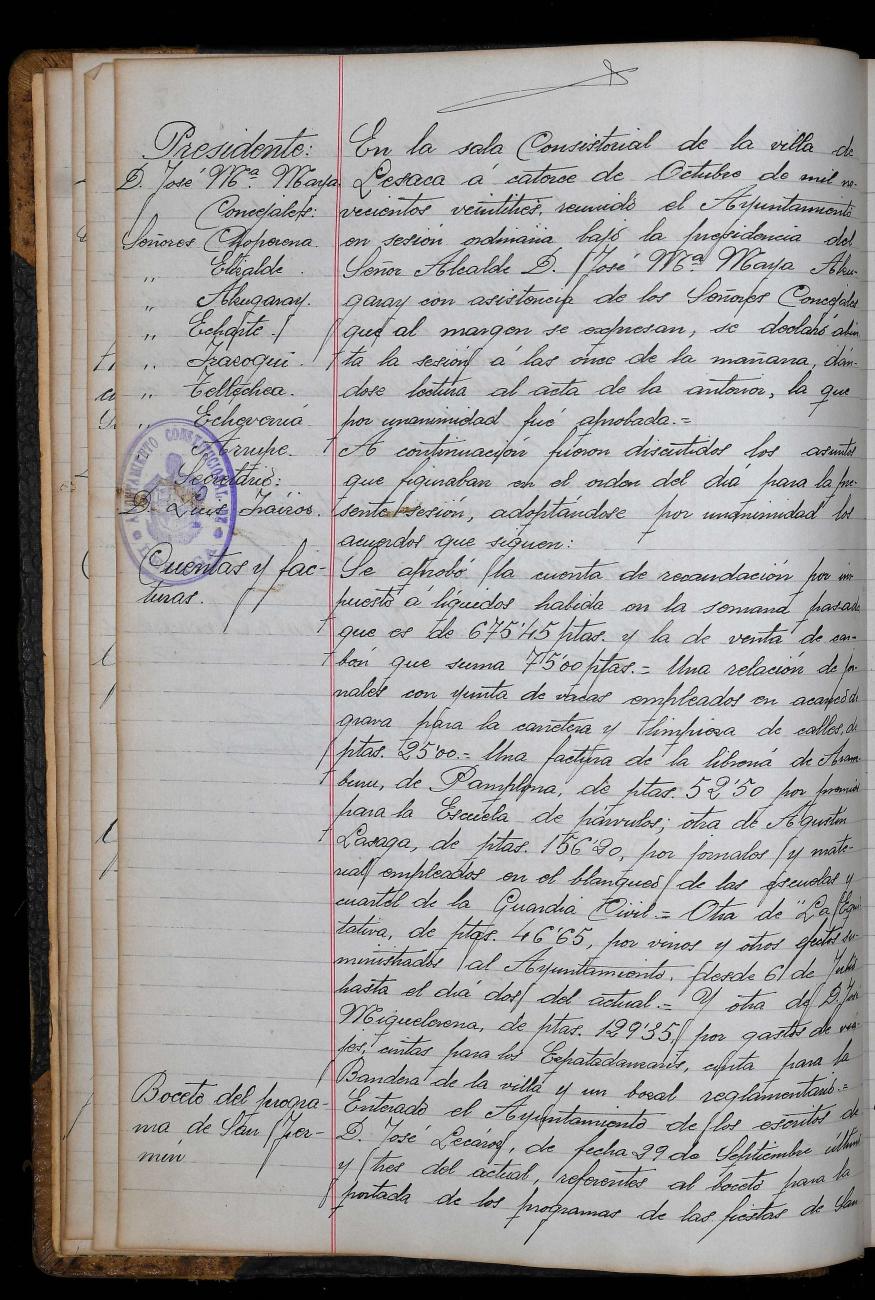 Presidente:
D. José Mª Maya
Concejales:
Señores Choperena.
,, Elizalde.
,, Alzugaray.
,, Echarte.
,, Iracoqui.
,, Tellechea.
,, Echeverría
Arrupe.
Secretario:
D. Luis
AYUNTAMIENTO CONSTITUCIONAL DE
Cuentas y fac-
turas.
Boceto del progra-
ma de San Fer-
mín
En la sala Consistorial de la villa de
Lesaca á catorce de Octubre de mil no-
vecientos veintitrés, reunido el Ayuntamiento
en sesión ordinaria bajo la presidencia del
Señor Alcalde D. José Mª Maya Alzu-
garay con asistencia de los Señores Concejales
que al margen se expresan, se declaró abier-
ta la sesión á las once de la mañana, dán-
dose lectura al acta de la anterior, la que
por unanimidad fué aprobada.=
A continuación fueron discutidos los asuntos
que figuraban en el orden del día para la pre-
sente sesión, adoptándose por unanimidad los
acuerdos que siguen:
Se aprobó la cuenta de recaudación por im-
puesto á líquidos habida en la semana pasada
que es de 675'45 ptas. y la de venta de car-
bón que suma 75'00 ptas.= Una relación de jor-
nales con yunta de vacas empleados en acarreo de
grava para la carretera y limpieza de calles, de
ptas. 25'00.= Una factura de la librería de Aram-
buru, de Pamplona, de ptas. 52'50 por premios
para la Escuela de párvulos; otra de Agustín
Lasaga, de ptas. 156'20, por jornales y mate-
rial empleados en el blanqueo de las escuelas y
cuartel de la Guardia Civil.= Otra de "La Equi-
tativa, de ptas. 46'65, por vinos y otros efectos su-
ministrados al Ayuntamiento, desde 6 de Julio
hasta el día dos del actual.= Y otra de D. José
Miquelorena, de ptas. 129'35, por gastos de via-
jes, cintas para los Ezpatadanaris, cinta para la
Bandera de la villa y un bozal reglamentario.=
Enterado el Ayuntamiento de los escritos de
D. José Lecároz, de fecha 29 de Septiembre último
y tres del actual, referentes al boceto para la
portada de los programas de las fiestas de San